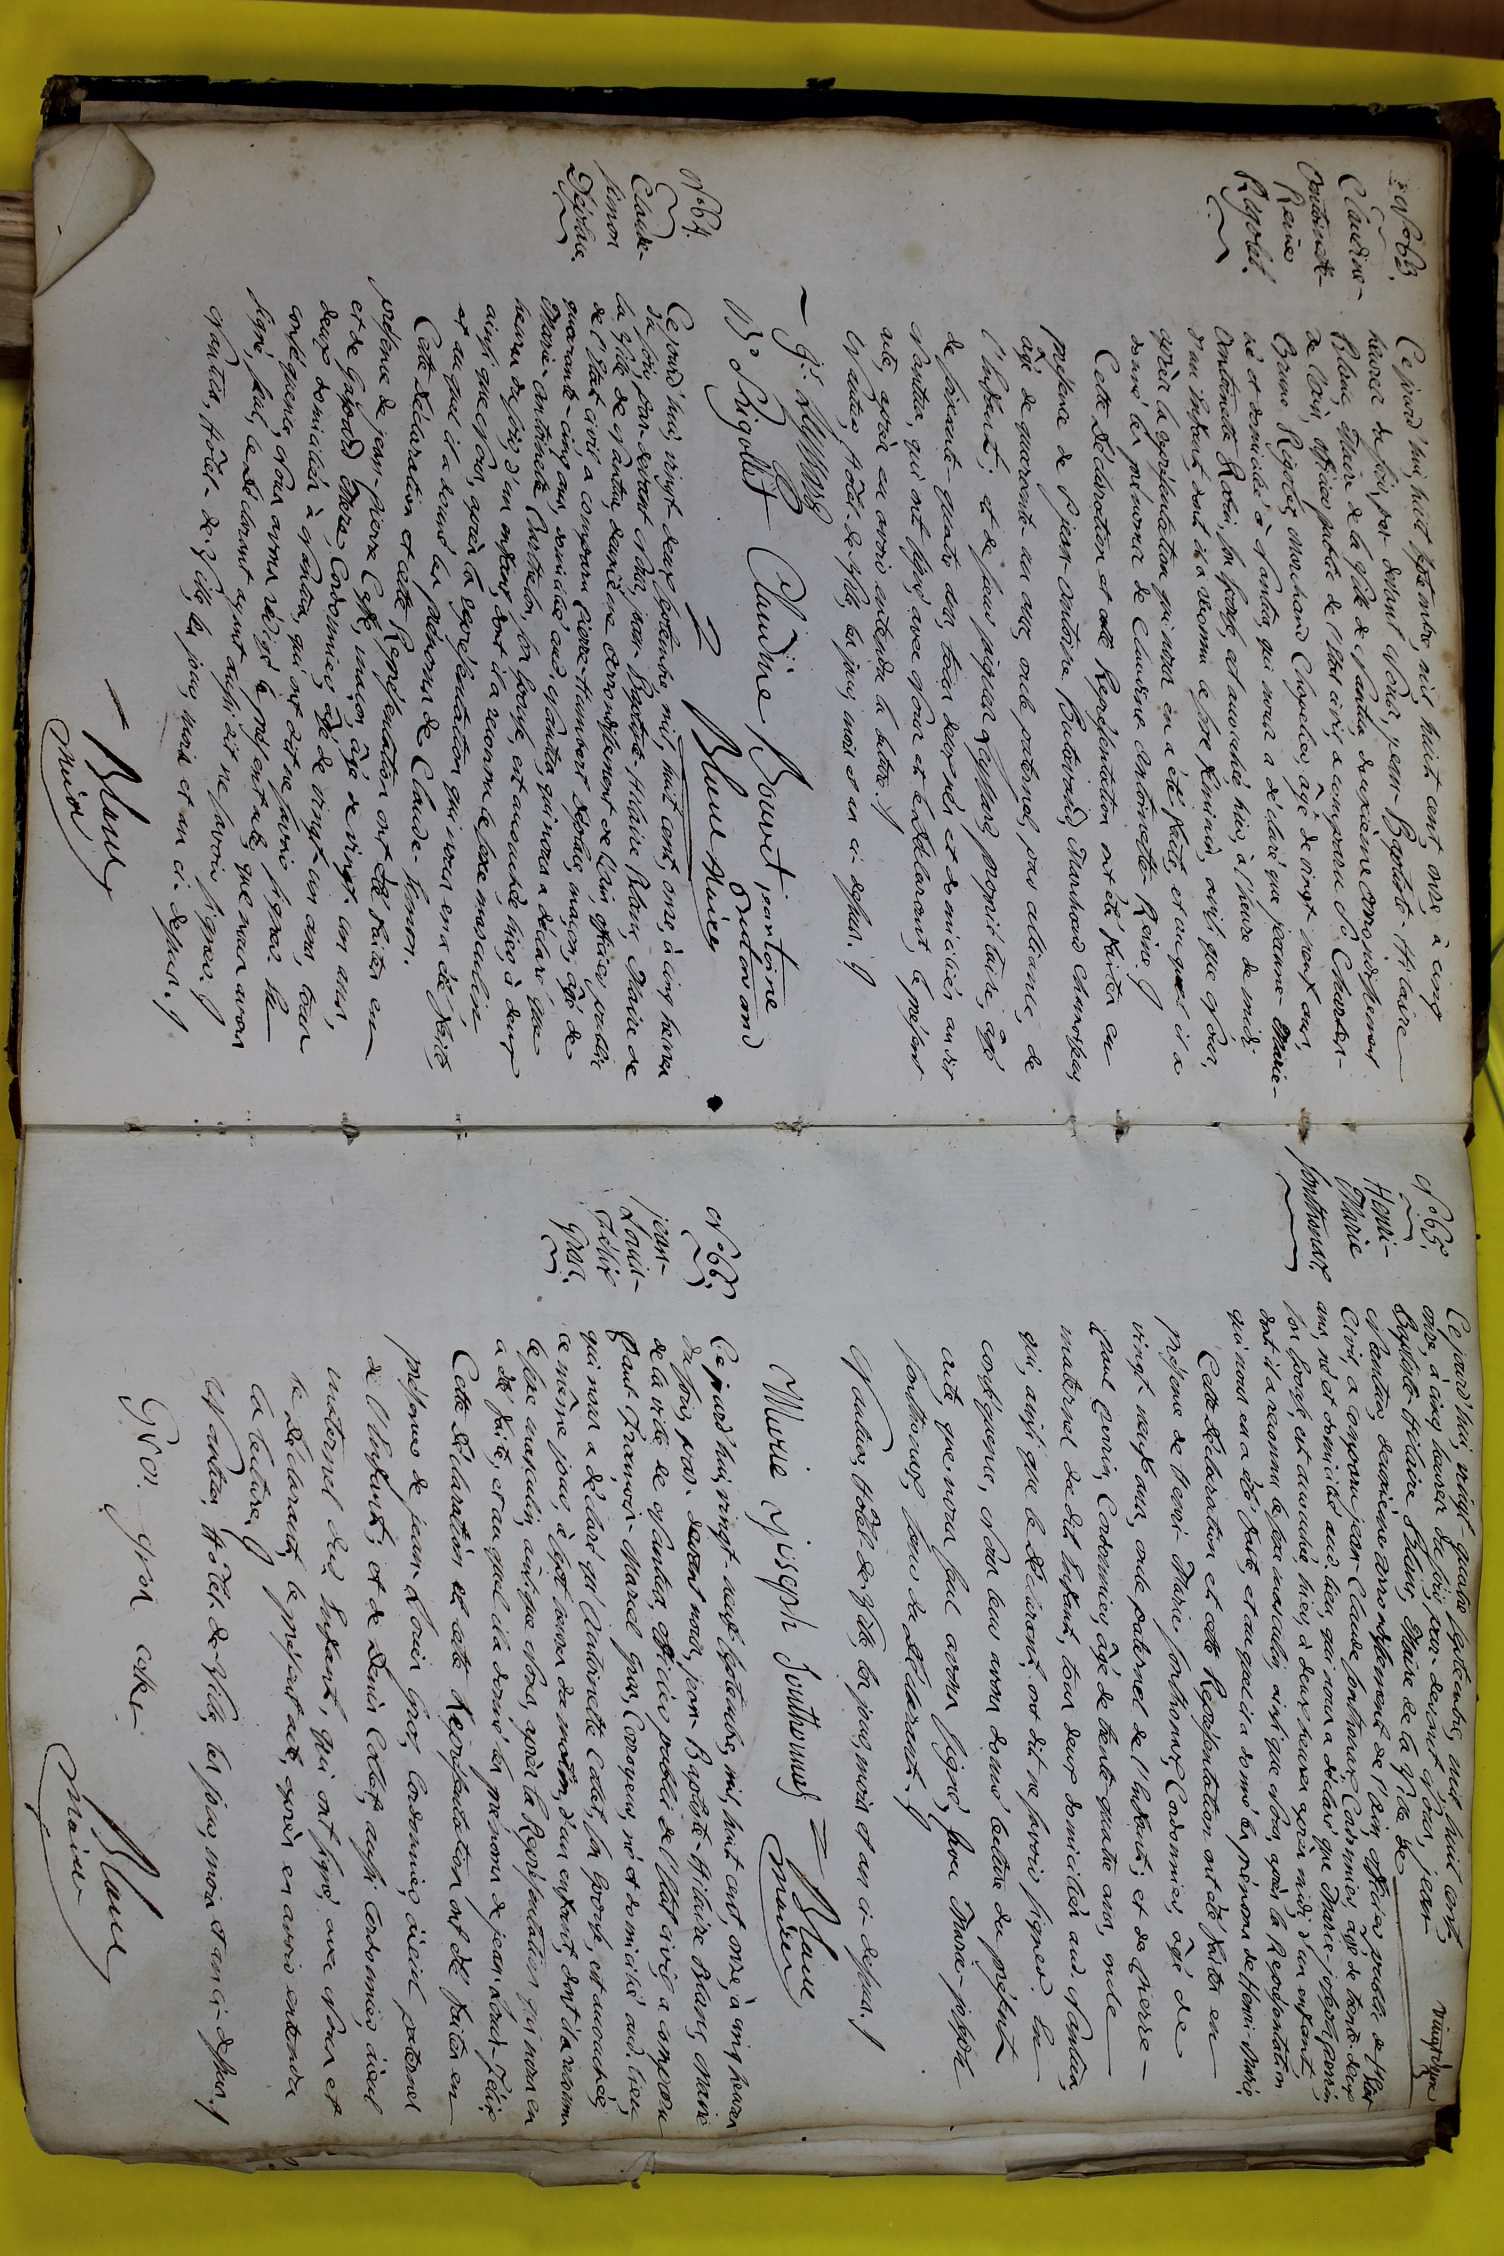 N.° 63.
Claudine-
Antoinette-
Reine
Rigolet.
Ce jourd'hui, huit septembre, mil, huit cent, onze, à cinq
heures du soir, par-devant Nous, jean-Baptiste-Hilaire
Blanc, Maire de la Ville de Nantua, deuxième arrondissement
de l'ain, officier public de l'état civil, a comparu S.r Charles-
Bruno Rigolet, marchand Chapelier, âgé de vingt-neuf ans,
né et domicilié à Nantua, qui nous a déclaré que jeanne-Marie-
Antoinette Robin, son épouse, est accouchée hier, à l'heure de midi
d'un Enfant, dont il a reconnu le sexe féminin, ainsi que Nous,
après la représentation qui nous en a été faite, et auquel il a
donné les prénoms de Claudine-Antoinette-Reine.
Cette Déclaration et cette Représentation ont été faites en
présence de S.r jean-antoine Prudamond, Marchand
âgé de quarante-un ans, oncle paternel, par alliance, de
l'Enfant; et de sieur propriétaire, âgé
de soixante-quatre ans, tous deux nés et domiciliés au dit
Nantua, qui ont signé avec Nous et le Déclarant, le présent
acte, après en avoir entendu la lecture.
Nantua, Hôtel-de-Ville, les jour, mois et an ci-dessus.
Claudine Bouvet, jantoine
Bo Rigollet
Blanc Maire
N.° 64.
Claude-
Simon
Ce jourd'hui, vingt-deux septembre, mil, huit cent, onze, à cinq heures
du soir, par-devant Nous, jean-Baptiste-Hilaire Blanc, Maire de
la Ville de Nantua, deuxième arrondissement de l'ain, officier public
de l'état civil, a comparu Pierre-Humbert maçon, âgé de
quarante-cinq ans, domicilié aud. Nantua, qui nous a déclaré que
Marie-Antoinette son épouse, est accouchée hier, à deux
heures du soir, d'un enfant, dont il a reconnu le sexe masculin
ainsi que Nous, après la représentation qui nous en a été faite,
et auquel il a donné les prénoms de Claude-Simon.
Cette Déclaration et cette Représentation ont été faites en
présence de jean-pierre maçon, âgé de vingt-un ans,
et de Cordonnier, âgé de vingt-un ans, tous
deux domiciliés à Nantua, qui ont dit ne savoir signer. En
conséquence, Nous avons rédigé le présent acte, que nous avons
signé, seul, le Déclarant ayant aussi dit ne savoir signer.
Nantua, Hôtel-de-Ville, les jour, mois et an ci-dessus.
Blanc
maire
N.° 65.
Henri-
Marie
Sonthonnax
Ce jourd'hui, vingt-quatre septembre, mil, huit cent,
onze, à cinq heures du soir, par-devant Nous, jean-
Baptiste-Hilaire Blanc, Maire de la Ville de
Nantua, deuxième arrondissement de l'ain, officier public de l'état
civil, a comparu jean-Claude Sonthonnax, Cordonnier, âgé de trente-deux
ans, né et domicilié aud. lieu, qui nous a déclaré que Marie-joseph Perrin
son épouse, est accouchée, hier, à deux heures après midi, d'un enfant,
dont il a reconnu le sexe masculin, ainsi que Nous, après la Représentation
qui nous en a été faite, et auquel il a donné les prénoms de Henri-Marie.
Cette Déclaration et cette Représentation ont été faites en
présence de henri-Marie Sonthonnax, Cordonnier, âgé de
vingt-neuf ans, oncle paternel de l'Enfant; et de Pierre-
Paul Perrin, Cordonnier, âgé de trente-quatre ans, oncle
maternel du dit Enfant, tous deux domiciliés aud. Nantua,
qui, ainsi que le Déclarant, ont dit ne savoir signer. En
conséquence, Nous leur avons donné lecture du présent
acte, que nous seul avons signé, avec Marie-joseph
Sonthonnax, sœur du Déclarant.
Nantua, Hôtel-de-Ville, les jour, mois et an ci-dessus.
Marie joseph Sonthonnax
Blanc
maire
N.° 66.
jean-
Louis-
Félix
Gros.
Ce jourd'hui, vingt-neuf septembre, mil, huit cent, onze, à cinq heures
du soir, par-devant nous, jean-Baptiste-Hilaire Blanc, Maire
de la ville de Nantua, officier public de l'état civil, a comparu
Paul-François-Marcel Gros, Corroyeur, né et domicilié aud. lieu,
qui nous a déclaré qu'Antoinette Colet, son épouse, est accouchée,
ce même jour, à sept heures du matin, d'un enfant, dont il a reconnu
le sexe masculin, ainsi que Nous, après la Représentation qui nous en
a été faite, et auquel il a donné les prénoms de jean-Louis-Félix
Cette Déclaration et cette Représentation ont été faites en
présence de jean-Louis Gros, Cordonnier, aïeul paternel
de l'Enfant; et de Denis Colet, aussi Cordonnier, aïeul
maternel dud. Enfant, qui ont signé, avec Nous et
le Déclarant, le présent acte, après en avoir entendu
la lecture.
Nantua, Hôtel-de-Ville, les jour, mois et an ci-dessus.
Gros
Blanc
maire